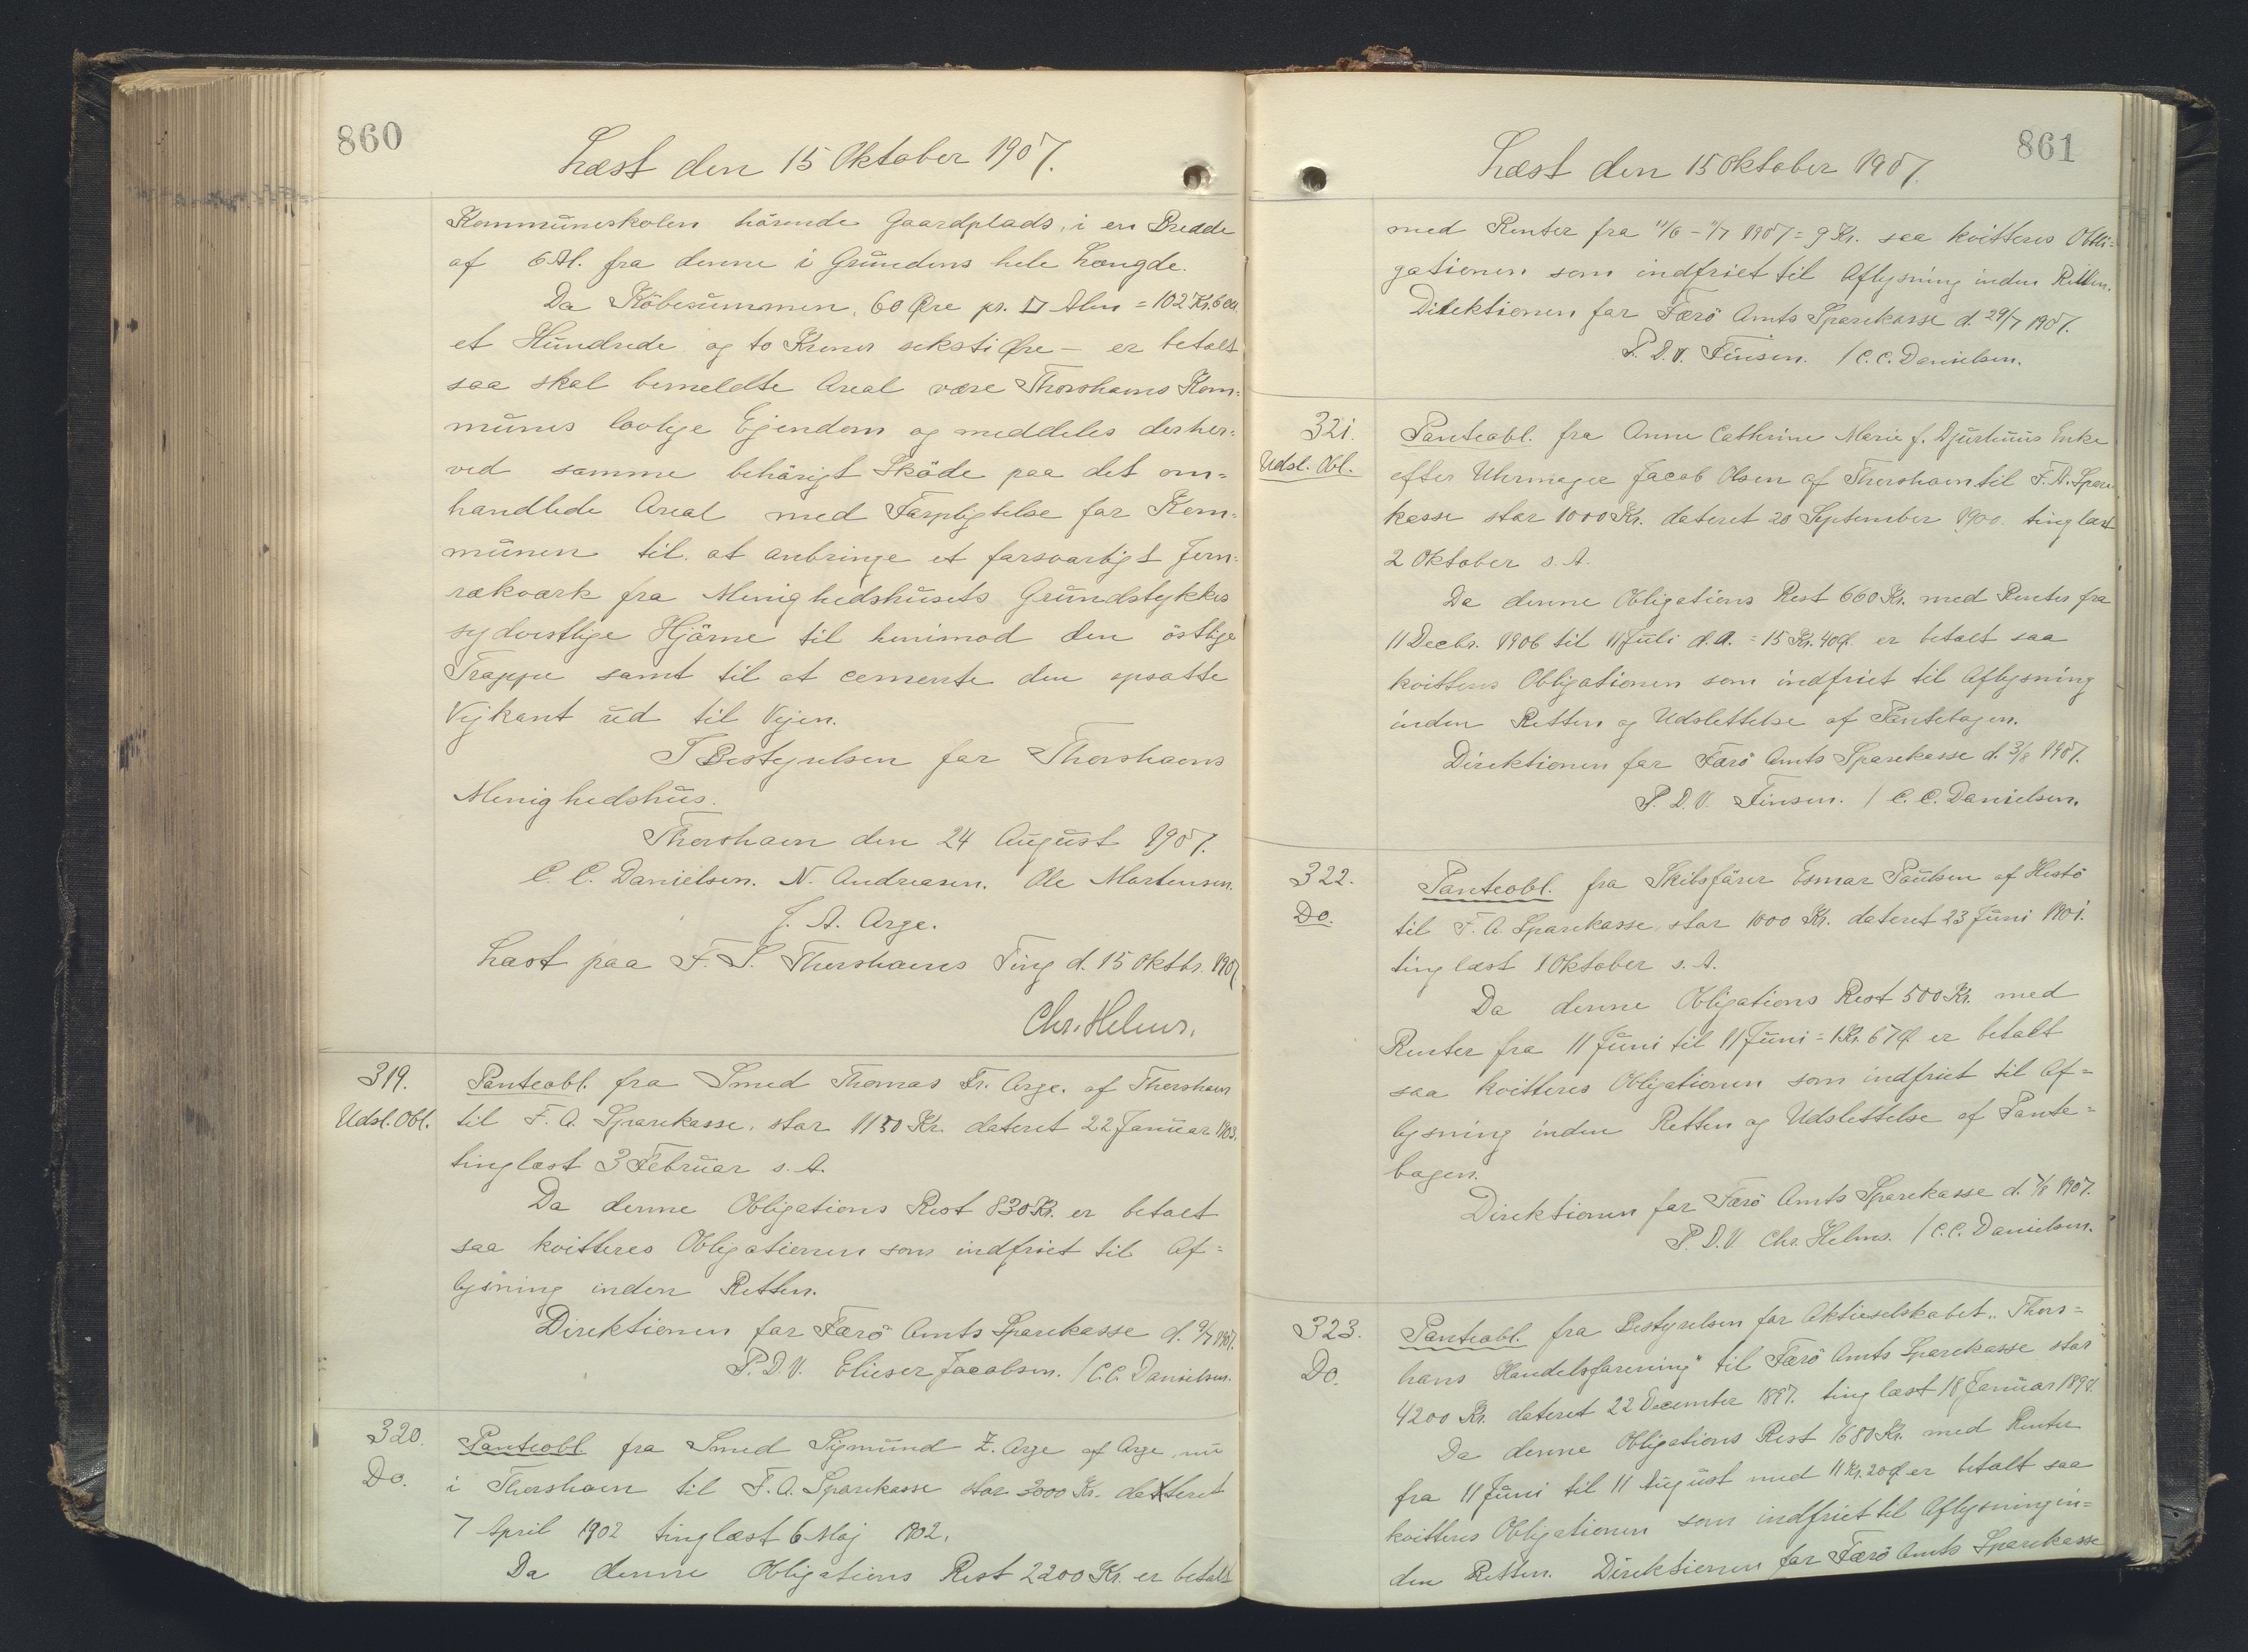 860
Læst den 15 Oktober 1907.
Kommuneskolen hörende Gaardplads, i en Bredde
af 6 Al. fra denne i Grundens hele Længde.
Da Köbesummen, 60 Øre pr. □ Alen = 102 Kr. 60 Ø.
et Hundrede og to Kroner seksti Øre – er betalt
saa skal bemeldte Areal være Thorshavns Kom-
munes lovlige Ejendom og meddeles derher-
ved samme behörigt Sköde paa det om-
handlede Areal med Forpligtelse for Kom-
munen til at anbringe et forsvarligt Jern-
rækværk fra Menighedshusets Grundstykkes
sydvestlige Hjörne til henimod den östlige
Trappe samt til at cemente den opsatte
Vejkant ud til Vejen.
I Bestyrelsen for Thorshavns
Menighedshus.
Thorshavn den 24 August 1907.
C. C. Danielsen. N. Andreasen. Ole Mortensen.
J. A. Arge.
Læst paa F. S. Thorshavns Ting d. 15 Oktbr. 1907
Chr. Helms.
319.
Udsl. Obl.
Panteobl. fra Smed Thomas Fr. Arge. af Thorshavn
til F. A. Sparekasse, stor 1150 Kr. dateret 22 Januar 1903.
tinglæst 3 Februar s. A.
Da denne Obligations Rest 830 Kr. er betalt
saa kvitteres Obligationen som indfriet til Af-
lysning inden Retten.
Direktionen for Færö Amts Sparekasse d. 9/7 1907.
P. D. V. Elieser Jacobsen. / C. C. Danielsen.
320.
Do.
Panteobl fra Smed Sigmund Z. Arge af Arge nu
i Thorshavn til F. A. Sparekasse stor 3000 Kr. datteret
7 April 1902 tinglæst 6 Maj 1902.
Da denne Obligations Rest 2200 Kr. er betalt
861
Læst den 15 Oktober 1907.
med Renter fra 11/6 – 11/7 1907 = 9 Kr. saa kvitteres Obli-
gationen som indfriet til Aflysning inden Retten.
Direktionen for Færö Amts Sparekasse d. 29/7 1907.
P. D. V. Finsen. / C. C. Danielsen.
321.
Udsl. Obl.
Panteobl. fra Anne Cathrine Marie f. Djurhuus Enke
efter Uhrmager Jacob Olsen af Thorshavn til F. A. Spare
kasse stor 1000 Kr. dateret 20 September 1900. tinglæst
2 Oktober s. A.
Da denne Obligations Rest 660 Kr. med Renter fra
11 Decbr. 1906 til 11 Juli d. A. = 15 Kr. 40 Ø. er betalt saa
kvitteres Obligationen som indfriet til Aflysning
inden Retten og Udslettelse af Pantebogen.
Direktionen for Færö Amts Sparekasse d. 3/8 1907.
P. D. V. Finsen. / C. C. Danielsen.
322.
Do.
Panteobl. fra Skibsförer Esmar Paulsen af Hestö
til F. A. Sparekasse stor 1000 Kr. dateret 23 Juni 1901.
tinglæst 1 Oktober s. A.
Da denne Obligations Rest 500 Kr. med
Renter fra 11 Juni til 11 Juni = 1 Kr. 67 Ø er betalt
saa kvitteres Obligationen som indfriet til Af-
lysning inden Retten og Udslettelse af Pante-
bogen.
Direktionen for Færö Amts Sparekasse d. 7/8 1907.
P. D. V. Chr. Helms. / C. C. Danielsen.
323.
Do.
Panteobl. fra Bestyrelsen for Aktieselskabet „Thors-
havns Handelsforening" til Færö Amts Sparekasse stor
4200 Kr. dateret 22 December 1897. tinglæst 18 Januar 1898.
Da denne Obligations Rest 1680 Kr. med Renter
fra 11 Juni til 11 August med 11 Kr. 20 Ø er betalt saa
kvitteres Obligationen som indfriet til Aflysning in-
den Retten. Direktionen for Færö Amts Sparekasse